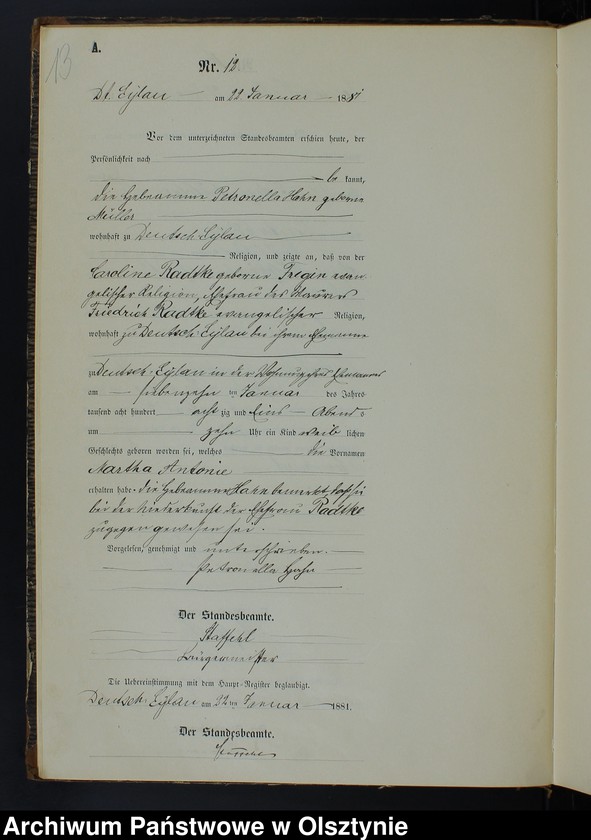 13
A.
Nr. 12.
Dt. Eylau am 22 Januar 1881
Vor dem unterzeichneten Standesbeamten erschien heute, der
Persönlichkeit nach
be kannt,
die Hebeamme Petronella Hahn geborne
Müller
wohnhaft zu Deutsch Eylau
Religion, und zeigte an, daß von der
Caroline Radtke geborne evan
gelischer Religion, Ehefrau des Maurers
Friedrich Radtke evangelischer Religion,
wohnhaft zu Deutsch Eylau bei ihrem Ehemanne
zu Deutsch-Eylau in der Wohnung ihres Ehemannes
am siebenzehn ten Januar des Jahres
tausend acht hundert acht zig und Eins Abends
um zehn Uhr ein Kind weib lichen
Geschlechts geboren worden sei, welches die Vornamen
Martha Antonie
erhalten habe. die Hebeamme Hahn bemerkt, daß sie
bei der Niederkunft der Ehefrau Radtke
zugegen gewesen sei.
Vorgelesen, genehmigt und unterschrieben.
Petronella Hahn
Der Standesbeamte.
Staffehl
Bürgermeister
Die Uebereinstimmung mit dem Haupt-Register beglaubigt.
Deutsch-Eylau am 22ten Januar 1881.
Der Standesbeamte.
Staffehl
Archiwum Państwowe w Olsztynie